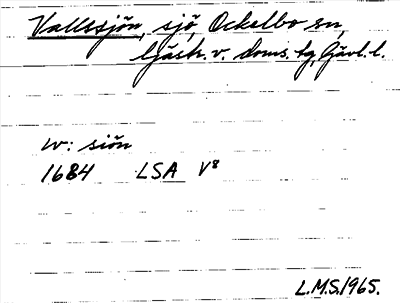 Vallssjön, sjö, Ockelbo sn,
Gästr. v. doms. hg, Gävl. l.
w: siön
1684 LSA V8
L.M.S. 1965.